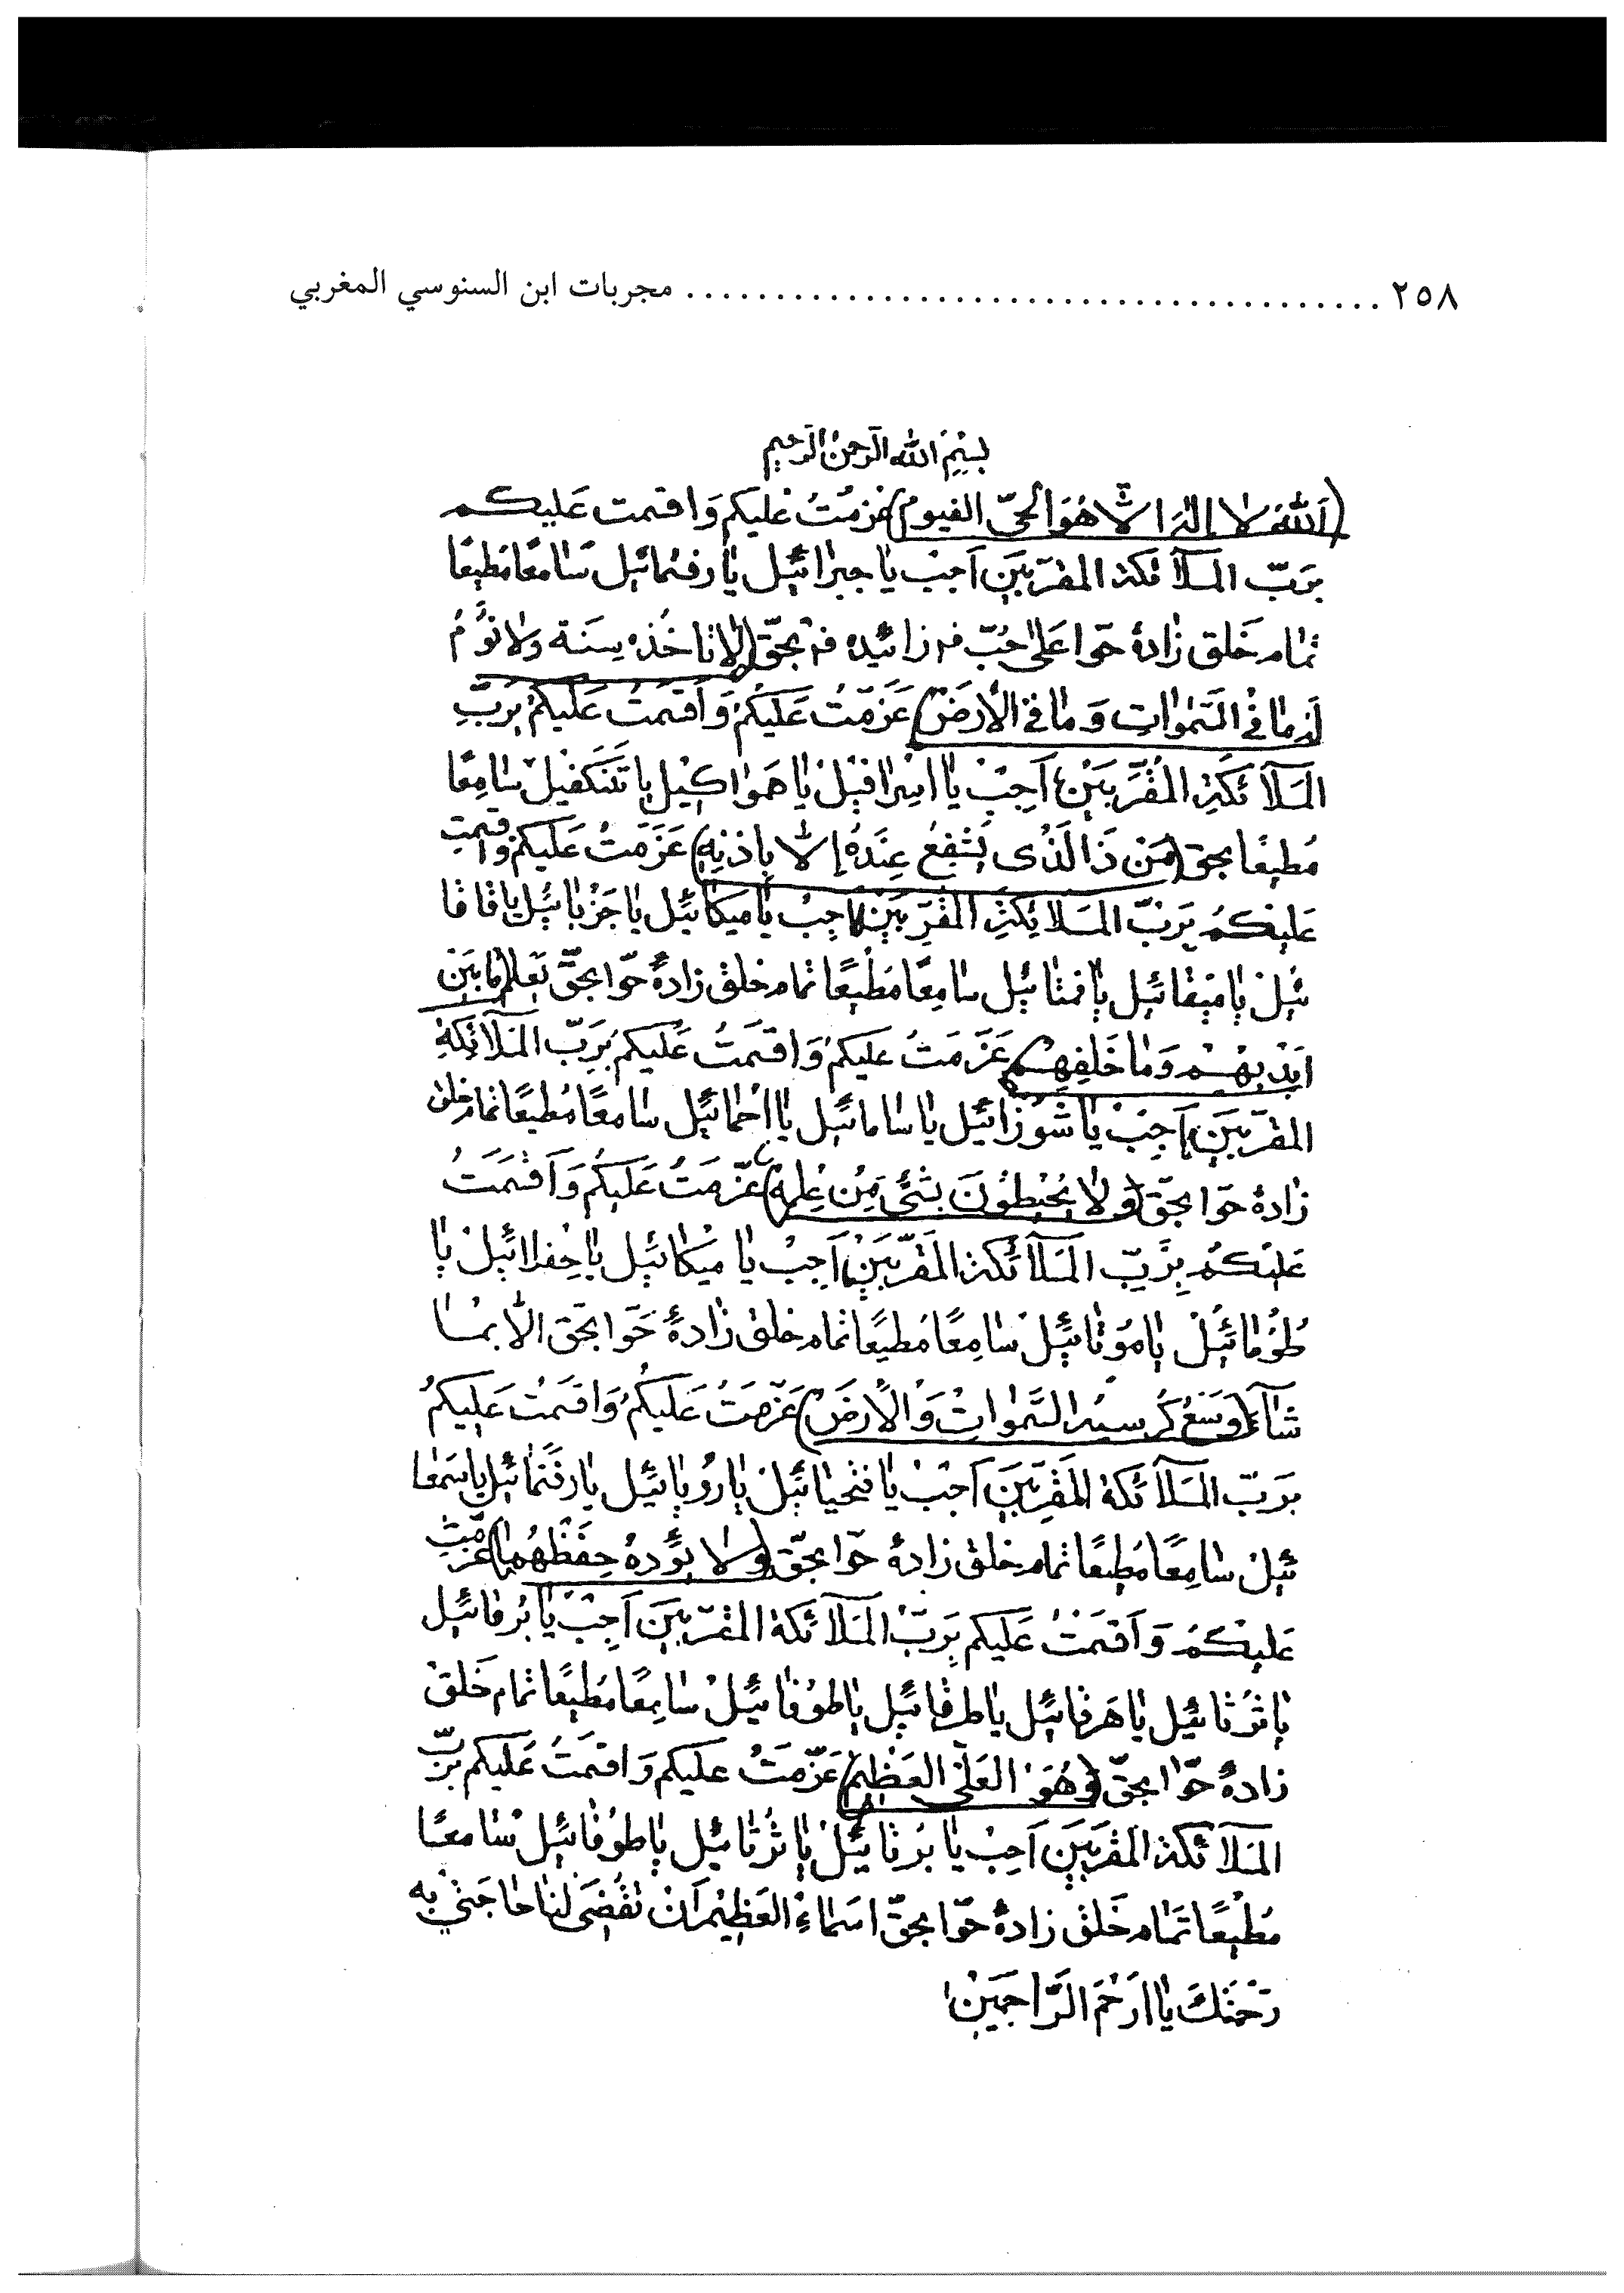 ٢٥٨ ........................................ مجربات ابن السنوسي المغربي
بِسْمِ اللّٰه الرّحمن الرّحيم
(اَللّٰهُ لا إله الّا هُوَ الحيّ القيوم) عَزمتُ عَليكم وَاقسمت عَليكم
بَربّ الملآئكة المقربَين اَجبْ يا جبرائيل يا رفتمائيل سامعًا مُطيعًا
تمام خَلق زادهٔ حوا عَلىٰ حُبّ زائيده بحقّ (لا تاخُذه سِنَة ولا نَوْمُ
لَه مٰا في السَّمٰوات وَمٰا في الأرضْ) عَزَمّتُ عَليكمْ وَاَقسَمْتُ عَلَيكمْ بَربِّ
المَلآئكة المُقَرّبَينْ اَجِبْ يا اسْرافيل يا هَواكيل يا تَنكَفيل سٰامِعًا
مُطيعًا بحق (مَن ذَالّذى يَشفعُ عِندَهُ إلّا بِاذنِهِ) عَزَمتُ عَليكم واقسمت
عَليكمُ بِرَبّ المَلائكةِ المقرّبين اَجِبْ يا ميكائيل يا جَزْبائيل يا قاقا
ئيل يا ميقائيل يا سامِعًا مُطيعًا تمام خلق زادهٔ حوّا بحقّ يَعلم (مٰا بَين
اَيْديهْم وَمٰا خَلفِهم) عَزَمَتُ عليكمْ وَاقسَمتُ عَليكم بَربّ المَلآئكةِ
المقرّبَين اَجِبْ يا شورزائيل يا ساماىئيل يا اخمائيل سامعًا مُطيعًا تمام خلق
زادهٔ حوّا بحقّ (وَلا يُحيطونَ بشئٍ مِنْ عِلمِه) عَزّمَتُ عَليكمُ وَاَقسَمَتُ
عَليْكمُ بِرَبِّ المَلآئكة المقرّبَين اَجِبْ يا ميكائيل يا حفرائيلْ يا
طُومائيلْ يا مُوثائيل سامِعًا مُطيعًا تمام خلق زادهٔ حَوّا بحق الّا بمٰا
شآءَ (وَسَعُ كُرسيه السَّمٰوات وَالأرضَ) عَزّمَتُ عَليكمُ وَاقسَمْتُ عَليكمُ
بَرَبّ المَلآئكة المقرّبَين اَجبْ يا فتحيائيل يا رُوبائيل يا رفتمائيل يا سَمعا
ئيل سامِعًا مُطيعًا تمام خلق زادهٔ حوّا بحقّ (وَلا يؤُدهُ حِفظُهُمٰا) عَزمّتِ
عَليْكمُ وَاَقسَمتُ عَليكم بَربّ المَلآئكة المقرّبين اَجِبْ يا بُرقائيل
يا ثرثائيل يا هَرقائيل يا طرقائيل يا طوُفائيلْ سامِعًا مُطيعًا تمام خَلق
زادهٔ حوّا بحقّ (وَهوَ العَلىّ العَظيم) عَزّمَتُ عليكم وَاقسَمتُ عَليكم بَربّ
المَلآئكة المقرّبَين اَجِبْ يا بُرقائيلْ يا ثرثائيل يا طوُفائيل سٰامعًا
مُطيْعًا تَمام خَلق زادهٔ حوّا بحقّ اسَماءِ العَظيْم اَنْ تقُضَى لنا حاجَتي به
رَحْمتكَ يا ارَحَمَ الرَّاحمَينْ